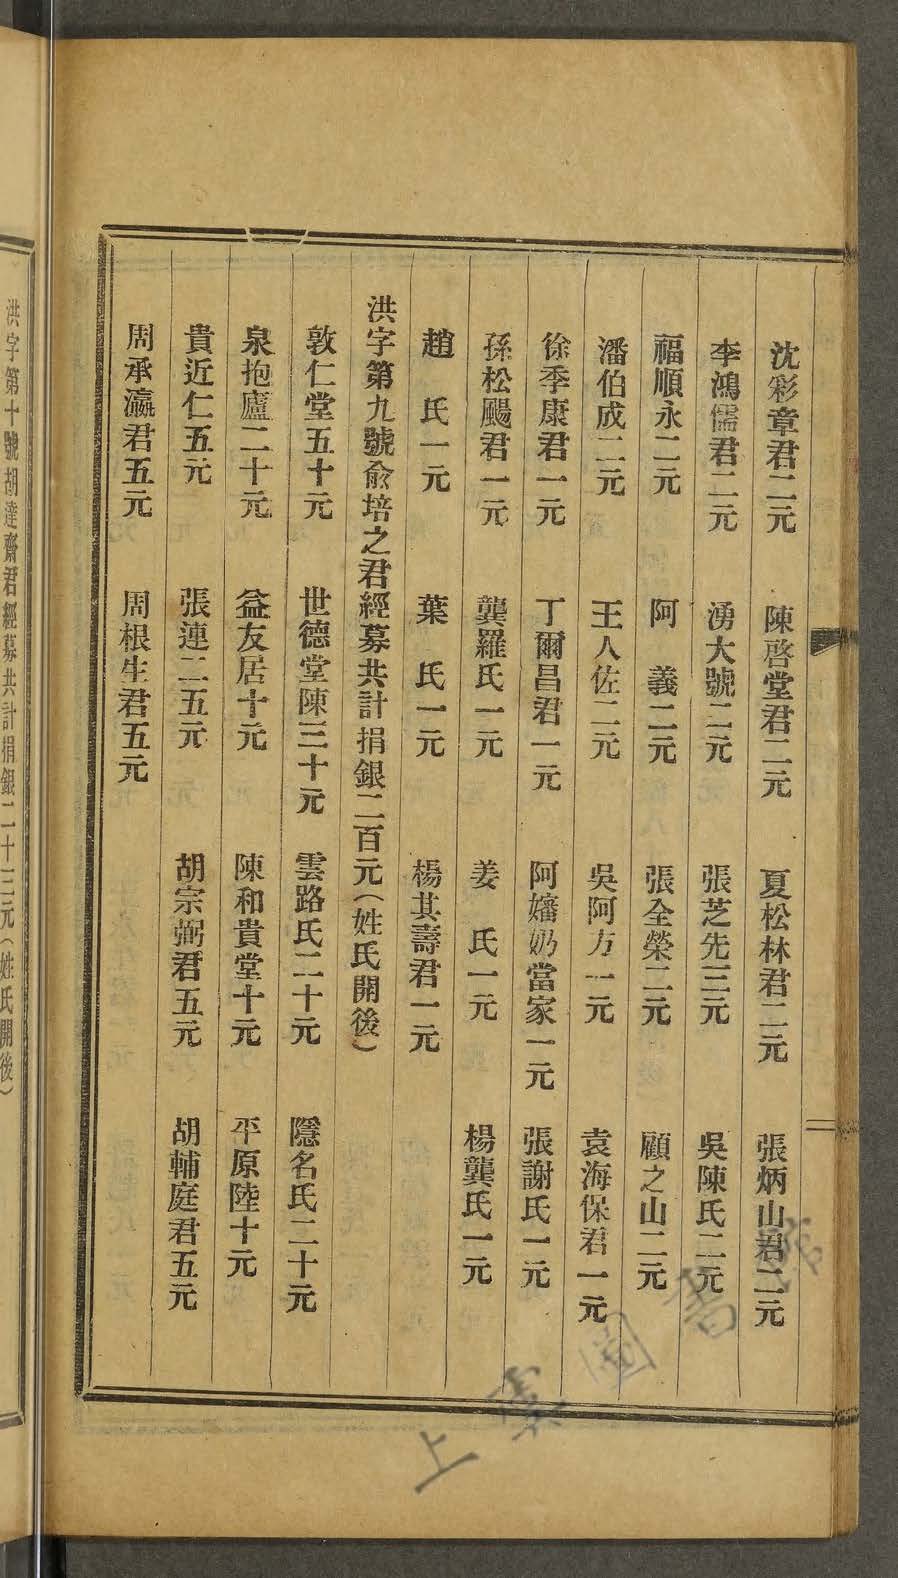 沈彩章君二元　陳啓堂君二元　夏松林君二元　張炳山君二元
李鴻儒君二元　湧大號二元　張芝先三元　吳陳氏二元
福順永二元　阿　義二元　張全榮二元　顧之山二元
潘伯成二元　王人佐二元　吳阿方一元　袁海保君一元
徐季康君一元　丁爾昌君一元　阿嬸奶當家一元　張謝氏一元
孫松颺君一元　龔羅氏一元　姜　氏一元　楊龔氏一元
趙　氏一元　葉　氏一元　楊其壽君一元
洪字第九號俞培之君經募共計捐銀二百元（姓氏開後）
敦仁堂五十元　世德堂陳三十元　雲路氏二十元　隱名氏二十元
泉抱廬二十元　益友居十元　陳和貴堂十元　平原陸十元
貴近仁五元　張連二五元　胡宗弼君五元　胡輔庭君五元
周承瀛君五元　周根生君五元
洪字第十號胡達齋君經募共計捐銀二十三元（姓氏開後）
上虞圖書館